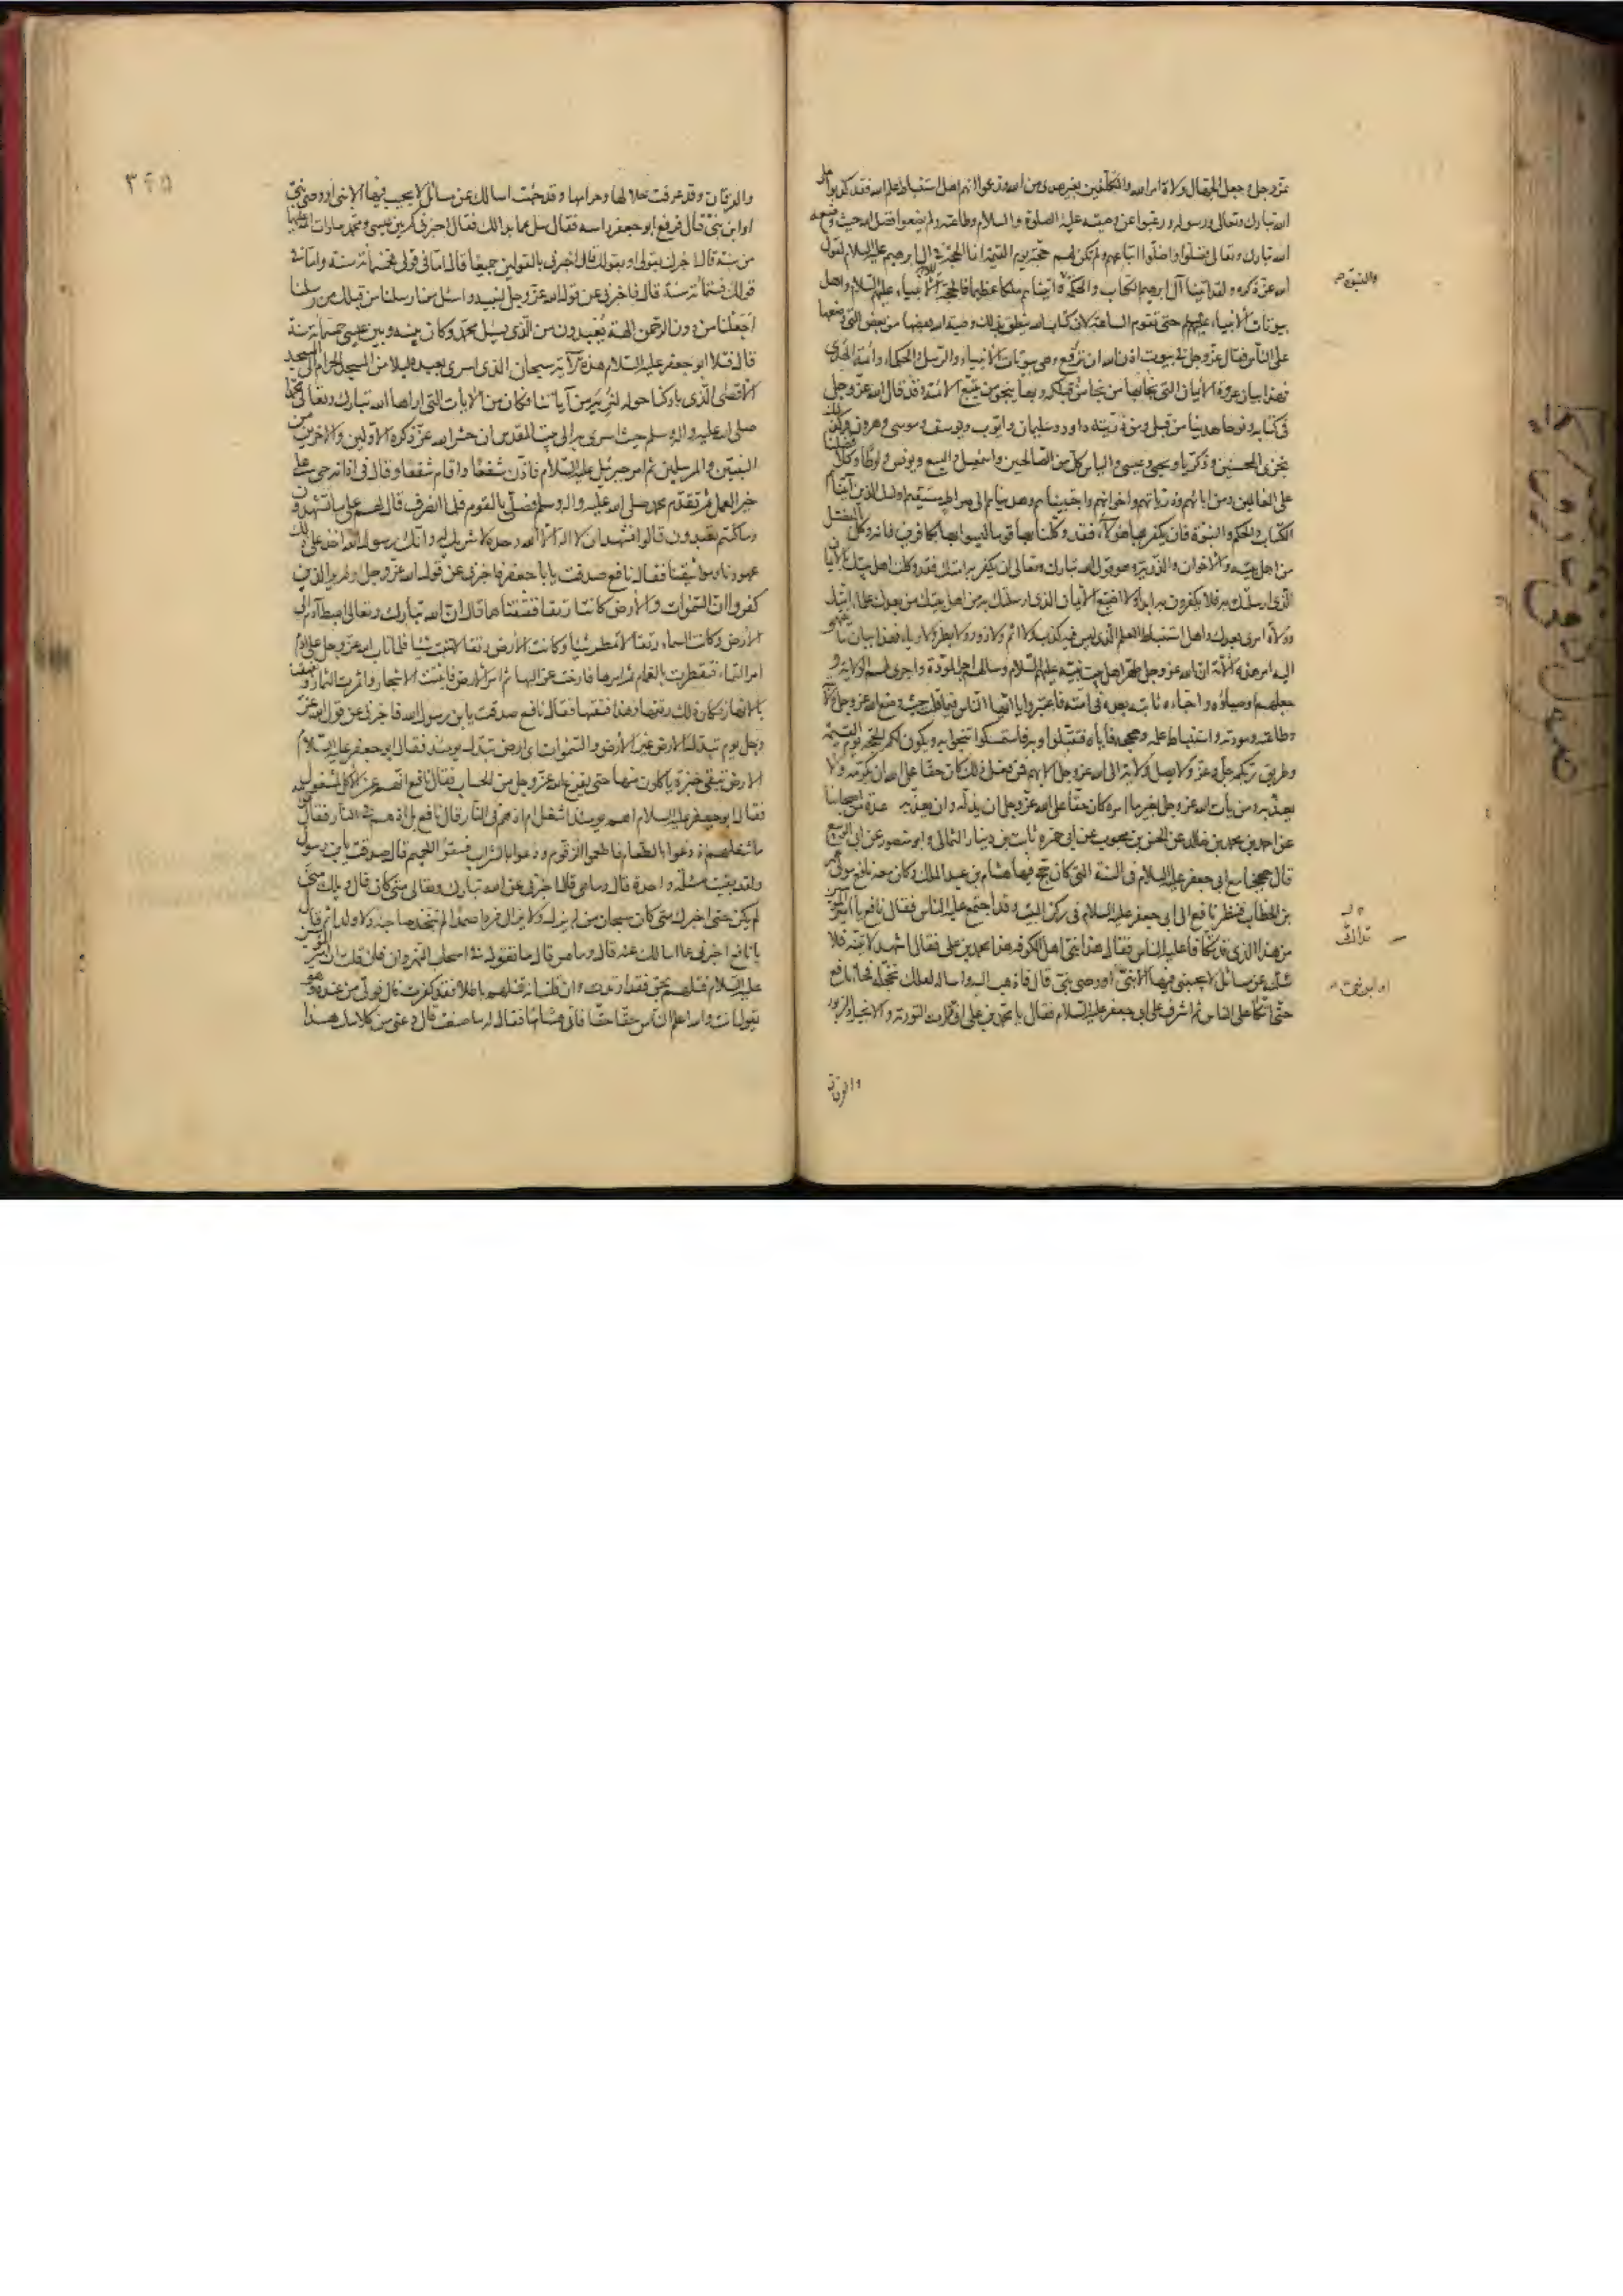 عز وجل وجعل الجهال ولاة امر الله والمتكلفين بغير هدى من الله وزعموا انهم اهل استنباط علم الله فقد كذبوا على
الله تبارك وتعالى ورسوله ورغبوا عن وصيته عليه الصلوة والسلام وطاعته ولم يضعوا فضل الله حيث وضعه
الله تبارك وتعالى فضلوا واضلوا اتباعهم ولم تكن لهم حجة يوم القيمة انما الحجة في آل ابرهيم عليه السلام لقول
الله عز ذكره ولقد اتينا آل ابرهيم الكتاب والحكم واتيناهم ملكا عظيما فالحجة الانبياء عليهم السلام واهل
والنبوة
بيوتات الانبياء عليهم حتى تقوم الساعة لان كتاب الله ينطق بذلك وصية الله بعضها من بعض التي وضعها
على الناس فقال عز وجل في بيوت اذن الله ان ترفع وهي بيوتات الانبياء والرسل والحكماء وائمة الهدى
فهذا بيان عروة الايمان التي نجا بها من نجا من قبلكم وبها ينجو من يتبع الائمة وقد قال الله عز وجل
في كتابه ونوحا هدينا من قبل ومن ذريته داود وسليمان وايوب ويوسف وموسى وهرون وكذلك
نجزي المحسنين وزكريا ويحيى وعيسى والياس كل من الصالحين واسمعيل واليسع ويونس ولوطا وكلا فضلنا
على العالمين ومن ابائهم وذرياتهم واخوانهم واجتبيناهم وهديناهم الى صراط مستقيم اولئك الذين آتيناهم
الكتاب والحكم والنبوة فان يكفر بها هؤلاء فقد وكلنا بها قوما ليسوا بها بكافرين فانه وكل بالفضل
من اهل بيته والاخوان والذرية وهو قول الله تبارك وتعالى ان يكفر به امتك فقد وكلت اهل بيتك بالايمان
الذي ارسلتك به فلا يكفرون به ابدا ولا اضيع الايمان الذي ارسلتك به من اهل بيتك من بعدك علماء امتك
وولاة امري بعدك واهل استنباط العلم الذي ليس فيه كذب ولا اثم ولا زور ولا بطر ولا رياء فهذا بيان ما ينتهي
اليه امر هذه الامة ان الله عز وجل طهر اهل بيت نبيه عليهم السلام وسالهم اجر المودة واجرى لهم الولاية و
جعلهم اوصياؤه واحباءه ثابتة بعده في امته فاعتبروا يا ايها الناس فيما قلت حيث وضع الله عز وجل ولايته
وطاعته ومودته واستنباط علمه وحججه فاياه فتقبلوا وبه فاستمسكوا تنجوا به ويكون لكم الحجة يوم القيمة
وطريق ربكم جل وعز ولا يصل ولاية الى الله عز وجل الا بهم فمن فعل ذلك كان حقا على الله ان يكرمه ولا
يعذبه ومن يأت الله عز وجل بغير ما امره كان حقا على الله عز وجل ان يذله وان يعذبه عدة من اصحابنا
عن احمد بن محمد بن خالد عن الحسن بن محبوب عن ابي حمزة ثابت بن دينار الثمالي وابو منصور عن ابي الربيع
قال حججنا مع ابي جعفر عليه السلام في السنة التي كان حج فيها هشام بن عبد الملك وكان معه نافع مولى عمر
بن الخطاب فنظر نافع الى ابي جعفر عليه السلام في ركن البيت وقد اجتمع عليه الناس فقال نافع يا امير المؤمنين
من هذا الذي قد تكافأ عليه الناس فقال هذا نبي اهل الكوفة هذا محمد بن علي فقال اشهد لاتينه فلا
تداك
سئلنه عن مسائل لا يجيبني فيها الا نبي او وصي نبي قال فاذهب اليه واساله لعلك تخجله فجاء نافع
او ابن نبي
حتى اتكا على الناس ثم اشرف على ابي جعفر عليه السلام فقال يا محمد بن علي اني قرات التورية والانجيل والزبور
والفرقان
٣٤٥
والفرقان وقد عرفت حلالها وحرامها وقد جئت اسالك عن مسائل لا يجيب فيها الا نبي او وصي نبي
او ابن نبي قال فرفع ابو جعفر راسه فقال سل عما بدا لك فقال اخبرني كم بين عيسى ومحمد صلوات الله عليهما
من سنة قال اخبرك بقولي او بقولك قال اخبرني بالقولين جميعا قال اما في قولي فخمسمائة سنة واما في
قولك فستمائة سنة قال فاخبرني عن قول الله عز وجل لنبيه واسئل من ارسلنا من قبلك من رسلنا
اجعلنا من دون الرحمن الهة يعبدون من الذي يسئل محمد وكان بينه وبين عيسى خمسمائة سنة
قال فتلا ابو جعفر عليه السلام هذه الآية سبحان الذي اسرى بعبده ليلا من المسجد الحرام الى المسجد
الاقصى الذي باركنا حوله لنريه من آياتنا فكان من الايات التي اراها الله تبارك وتعالى محمدا
صلى الله عليه واله وسلم حيث اسرى به الى بيت المقدس ان حشر الله عز ذكره الاولين والاخرين من
النبيين والمرسلين ثم امر جبرئيل عليه السلام فاذن شفعا واقام شفعا وقال في اذانه حي على
خير العمل ثم تقدم محمد صلى الله عليه واله وسلم فصلى بالقوم فلما انصرف قال لهم على ما تشهدون
وما كنتم تعبدون قالوا نشهد ان لا اله الا الله وحده لا شريك له وانك رسول الله اخذ على ذلك
عهودنا ومواثيقنا فقال نافع صدقت يا ابا جعفر فاخبرني عن قول الله عز وجل اولم ير الذين
كفروا ان السموات والارض كانتا رتقا ففتقناهما قال ان الله تبارك وتعالى اهبط آدم الى
الارض وكانت السماء رتقا لا تمطر شيئا وكانت الارض رتقا لا تنبت شيئا فلما تاب الله عز وجل على آدم
امر السماء فتقطرت بالغمام ثم امرها فارخت عزاليها ثم امر الارض فانبتت الاشجار واثمرت الثمار وتفهقت
بالانهار فكان ذلك رتقها وهذا فتقها فقال نافع صدقت يا بن رسول الله فاخبرني عن قول الله عز
وجل يوم تبدل الارض غير الارض والسموات اي ارض تبدل يومئذ فقال ابو جعفر عليه السلام
الارض تبقى خبزة ياكلون منها حتى يفرغ الله عز وجل من الحساب فقال نافع انهم عن الاكل لمشغولون
فقال ابو جعفر عليه السلام اهم يومئذ اشغل ام اذ هم في النار قال نافع بل اذ هم في النار فقال
ما شغلهم اذ دعوا بالطعام فاطعموا الزقوم ودعوا بالشراب فسقوا الحميم قال صدقت يا بن رسول الله
ولقد بقيت مسئلة واحدة قال وما هي قال اخبرني عن الله تبارك وتعالى متى كان قال ويلك متى
لم يكن حتى اخبرك متى كان سبحان من لم يزل ولا يزال فردا صمدا لم يتخذ صاحبة ولا ولدا ثم قال
يا نافع اخبرني عما اسالك عنه قال وما هو قال ما تقول في اصحاب النهروان فان قلت ان امير المؤمنين
عليه السلام قتلهم بحق فقد ارتددت وان قلت انه قتلهم باطلا فقد كفرت قال فولى من عنده وهو
يقول انت والله اعلم الناس حقا حقا فاتى هشاما فقال له ما صنعت قال دعني من كلامك هذا